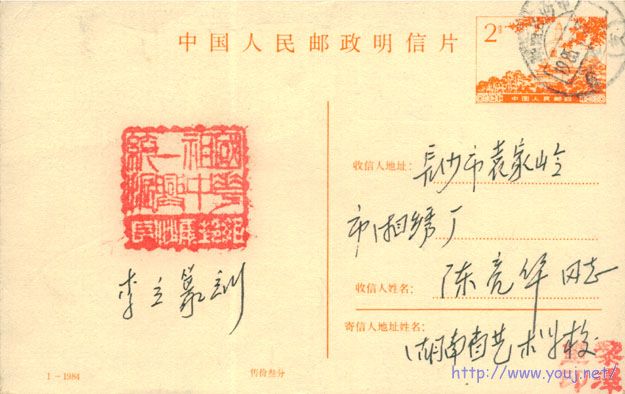 中国人民邮政明信片
2分
中国人民邮政
收信人地址：
长沙市袁家岭
市湘绣厂
收信人姓名：
陈亮华同志
寄信人地址姓名：
湖南省艺术学校
李立篆刻
1－1984
售价叁分
http://www.youj.net/